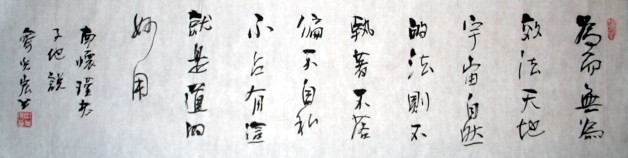 為而無為
效法天地
宇宙自然
的法則不
執著不落
偏不自私
不占有這
就是道的
妙用
南懷瑾老
子他說